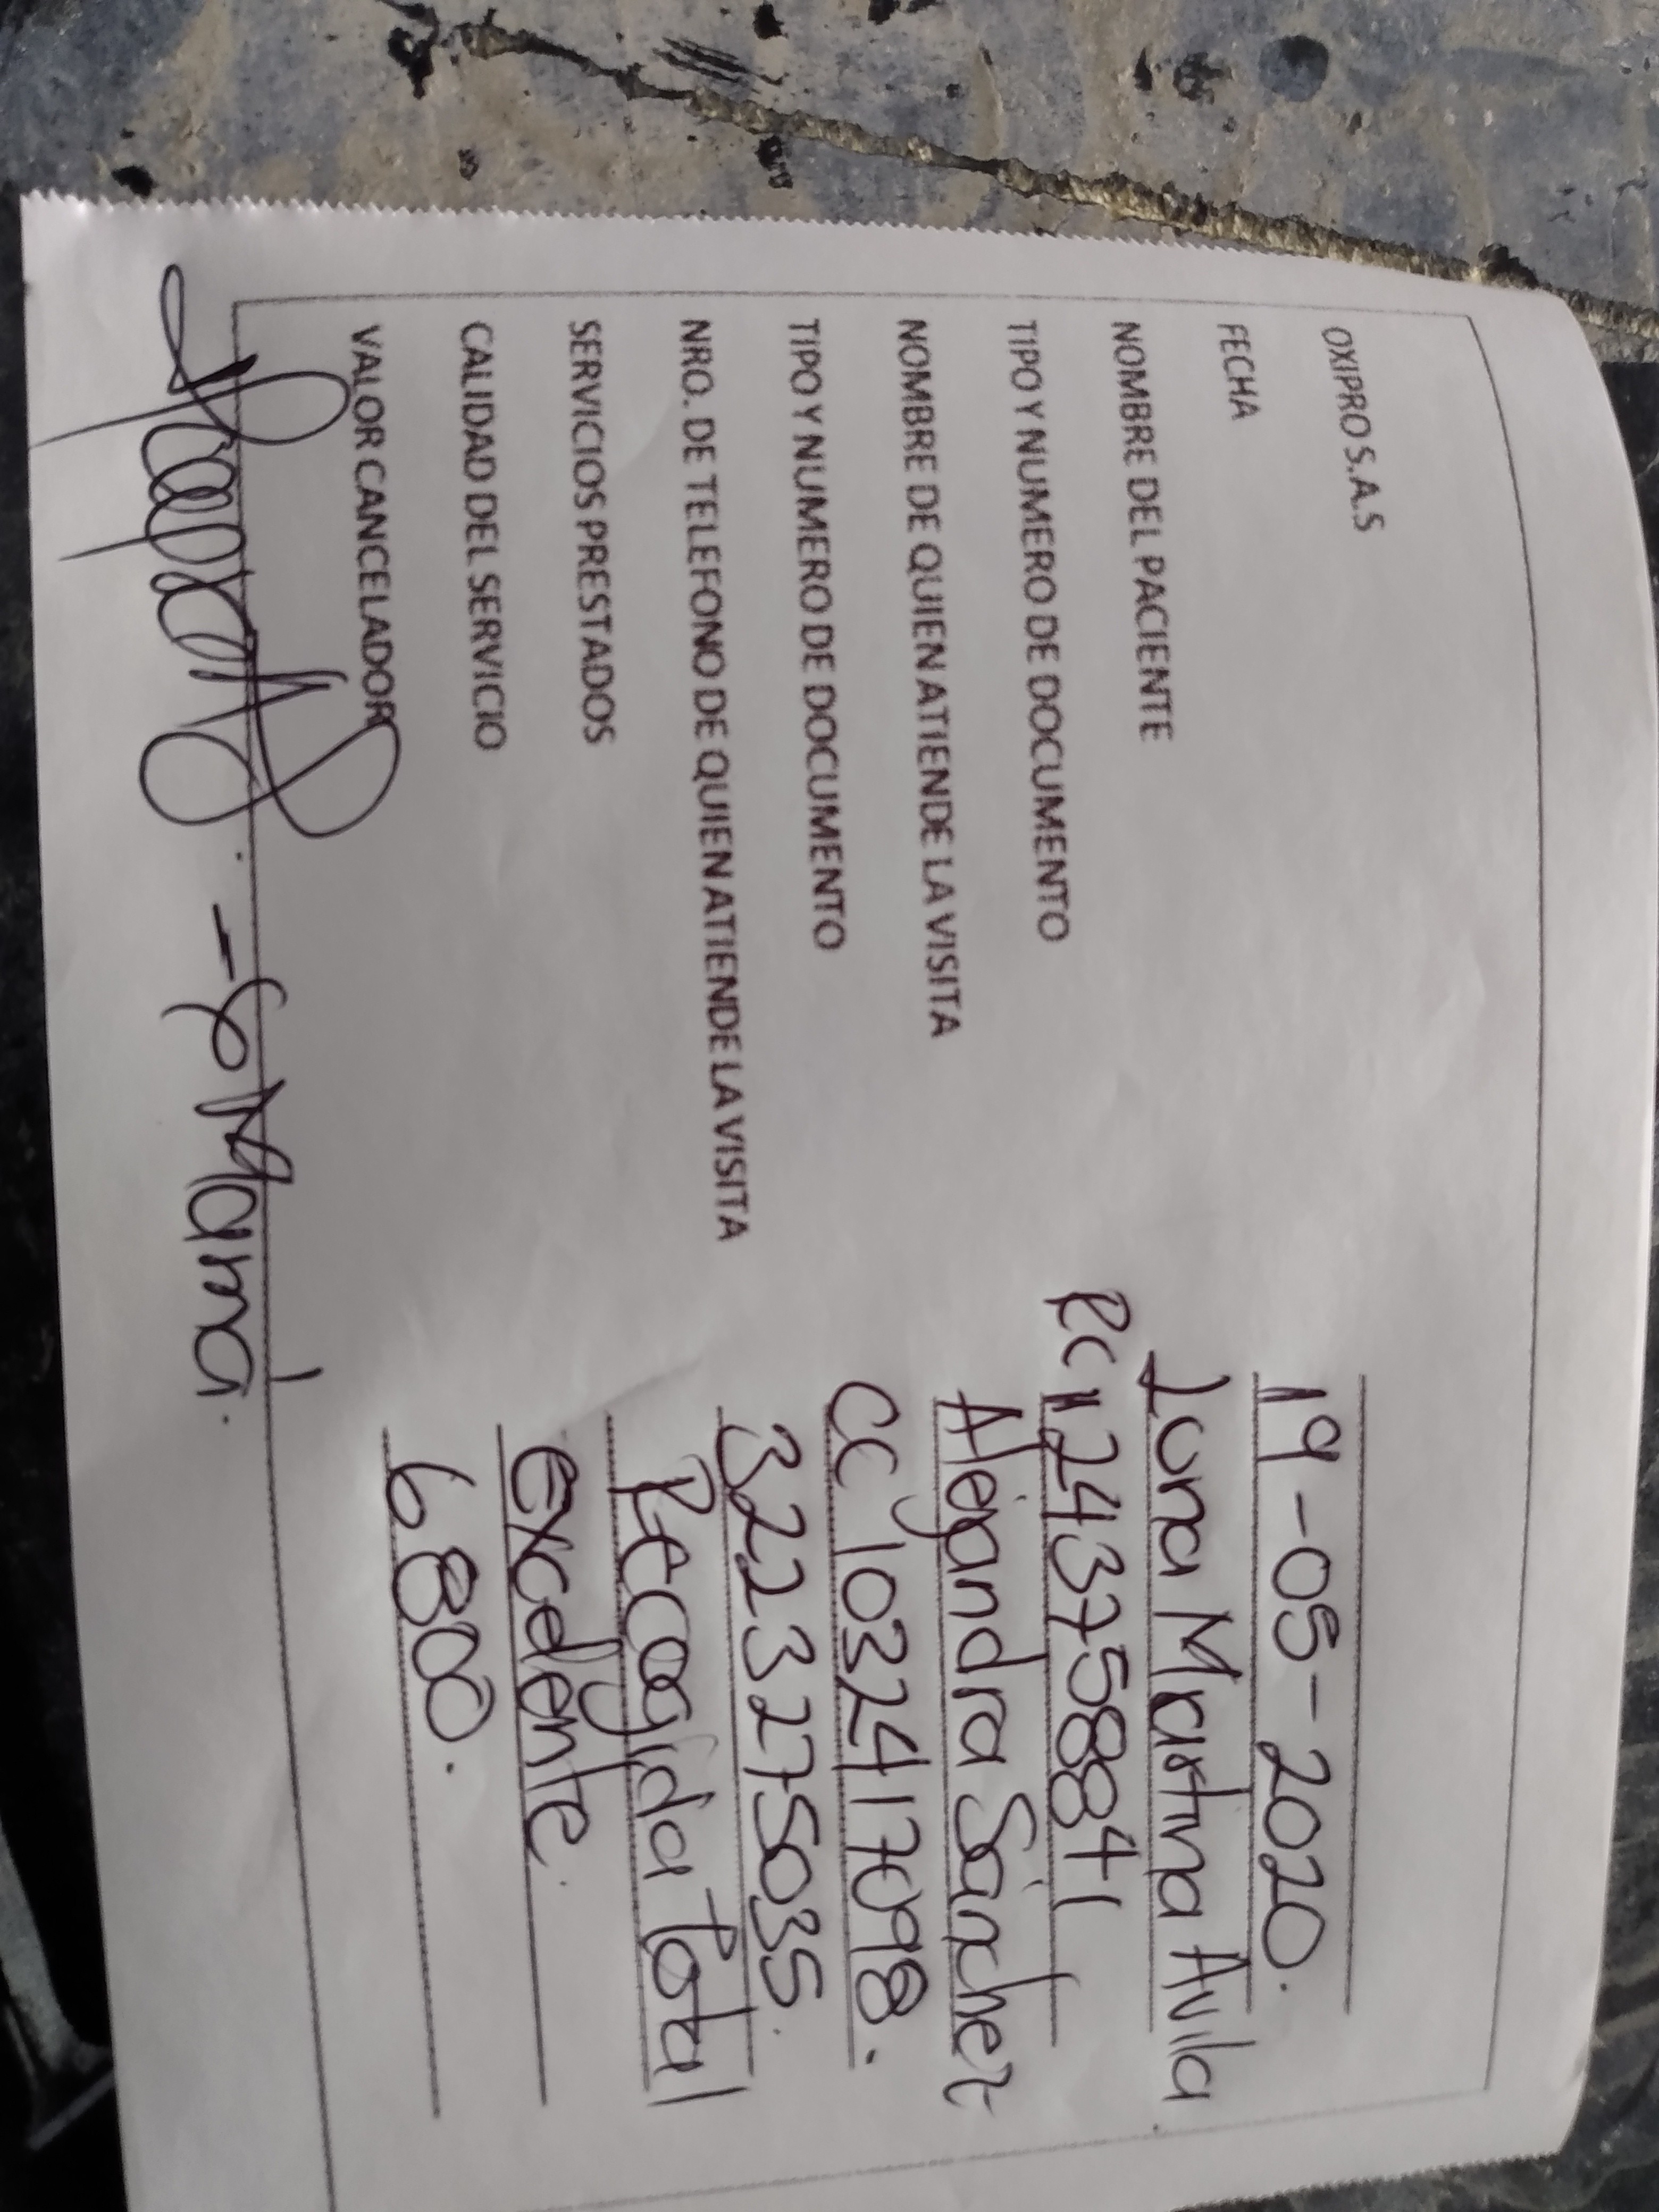 OXIPRO S.A.S
FECHA 19-05-2020.
NOMBRE DEL PACIENTE Luna Martina Avila
TIPO Y NUMERO DE DOCUMENTO RC 11243758841
NOMBRE DE QUIEN ATIENDE LA VISITA Alejandra Sánchez
TIPO Y NUMERO DE DOCUMENTO CC 1032417098.
NRO. DE TELEFONO DE QUIEN ATIENDE LA VISITA 3223275035.
SERVICIOS PRESTADOS Recogida Total
CALIDAD DEL SERVICIO excelente.
VALOR CANCELADOR 6800.
Mamá.